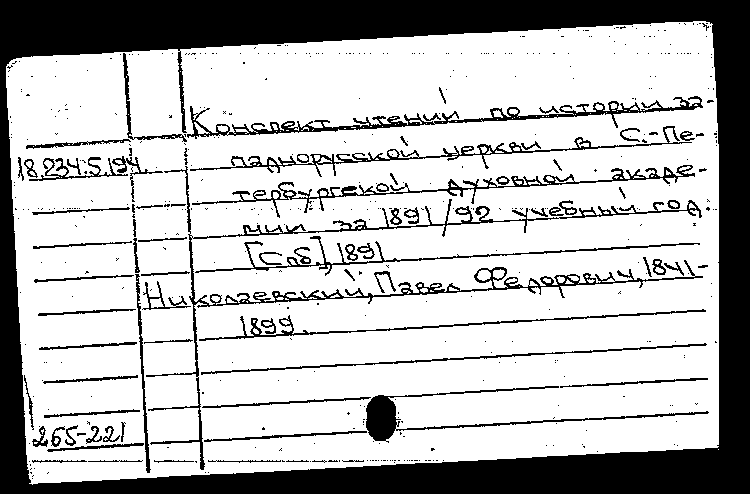 Конспект чтений по истории за-
18.234.5.194.
паднорусской церкви в С.-Пе-
тербургской духовной акаде-
мии за 1891/92 учебный год.
[Спб.], 1891.
Николаевский, Павел Федорович, 1841-
1899.
265-221